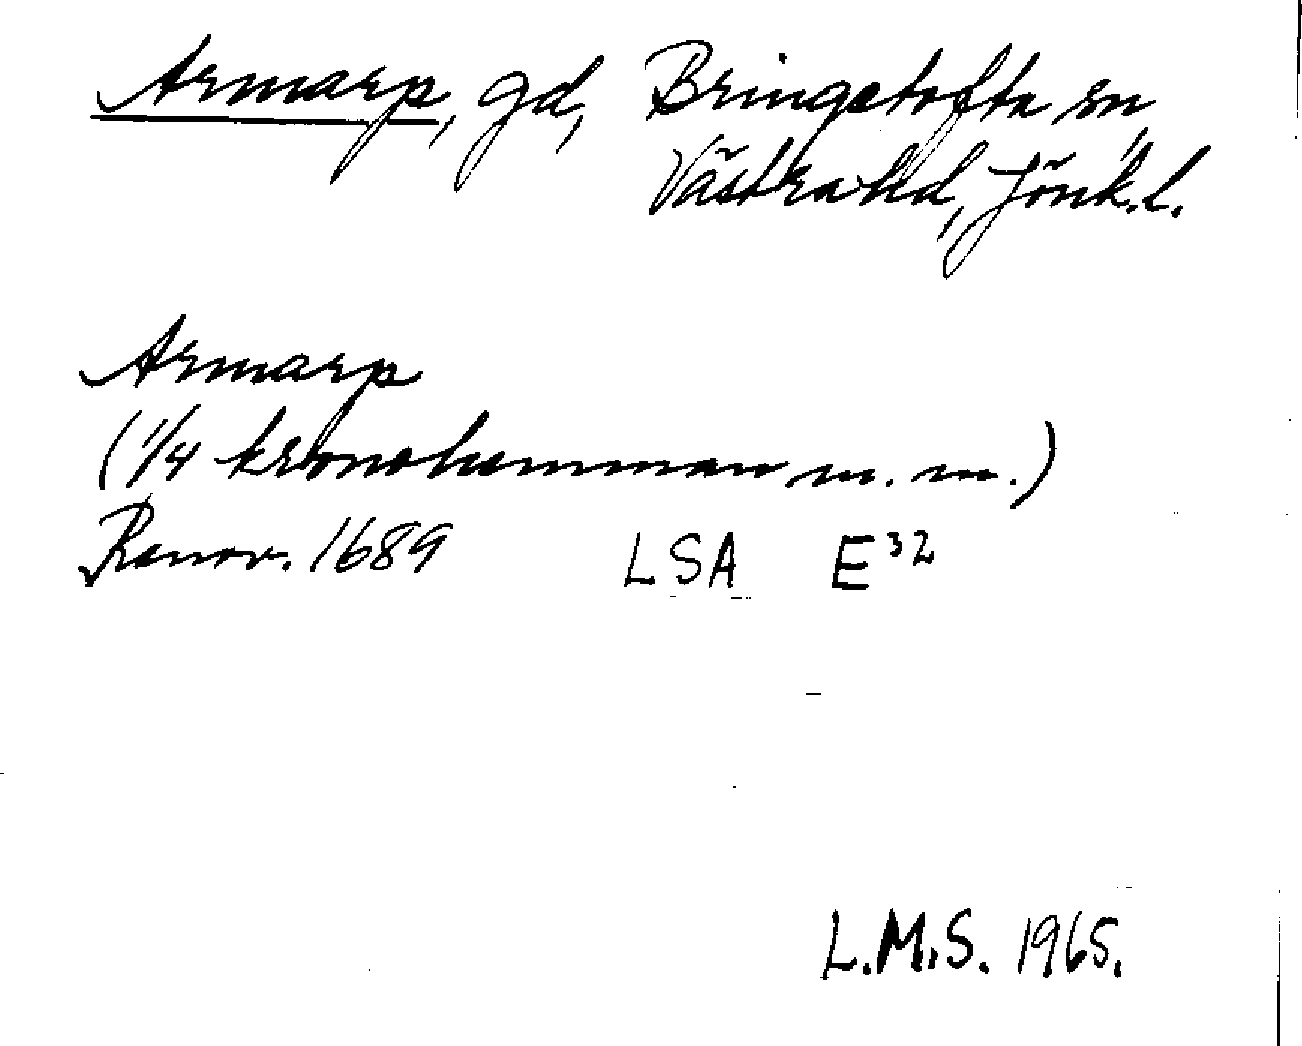 Armarp, gd, Bringetofta sn
Västra hd, Jönk.l.
Armarp
(1/4 kronohemman m. m.)
Renov. 1689 LSA E³²
L.M.S. 1965.